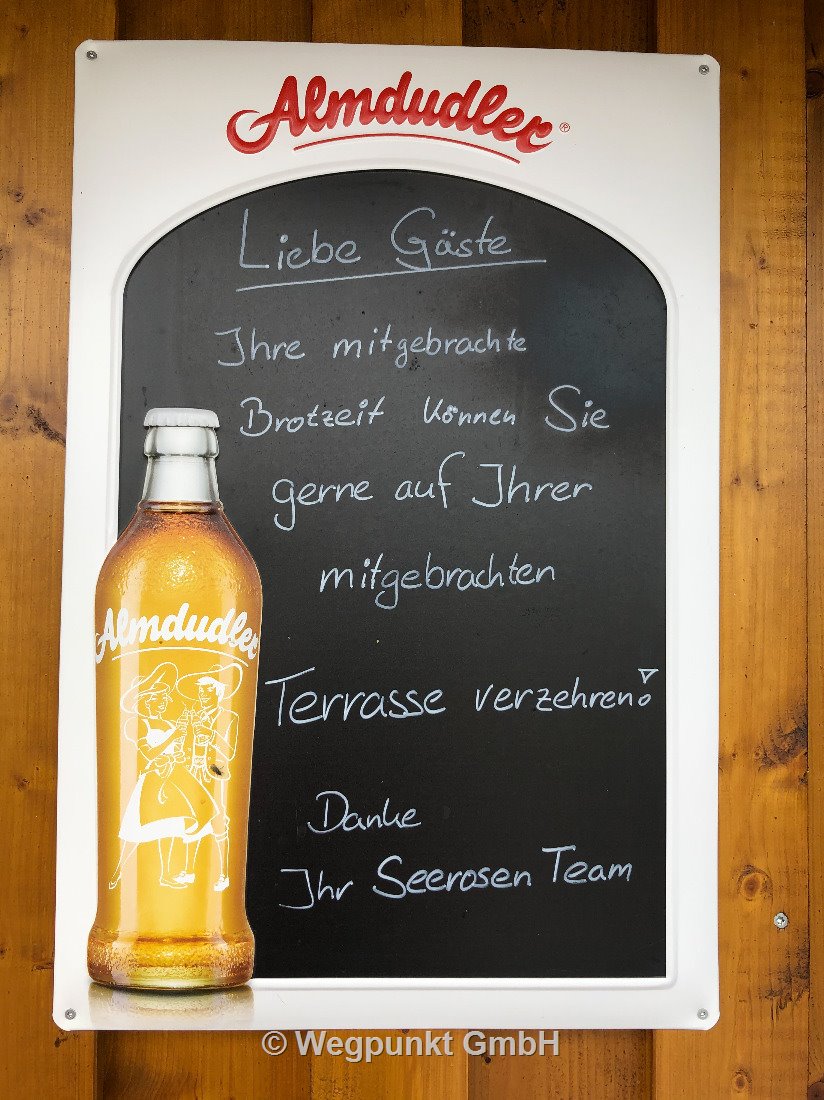 Almdudler®
Liebe Gäste
Ihre mitgebrachte
Brotzeit können Sie
gerne auf Ihrer
mitgebrachten
Terrasse verzehren!
Danke
Ihr Seerosen Team
Almdudler
© Wegpunkt GmbH